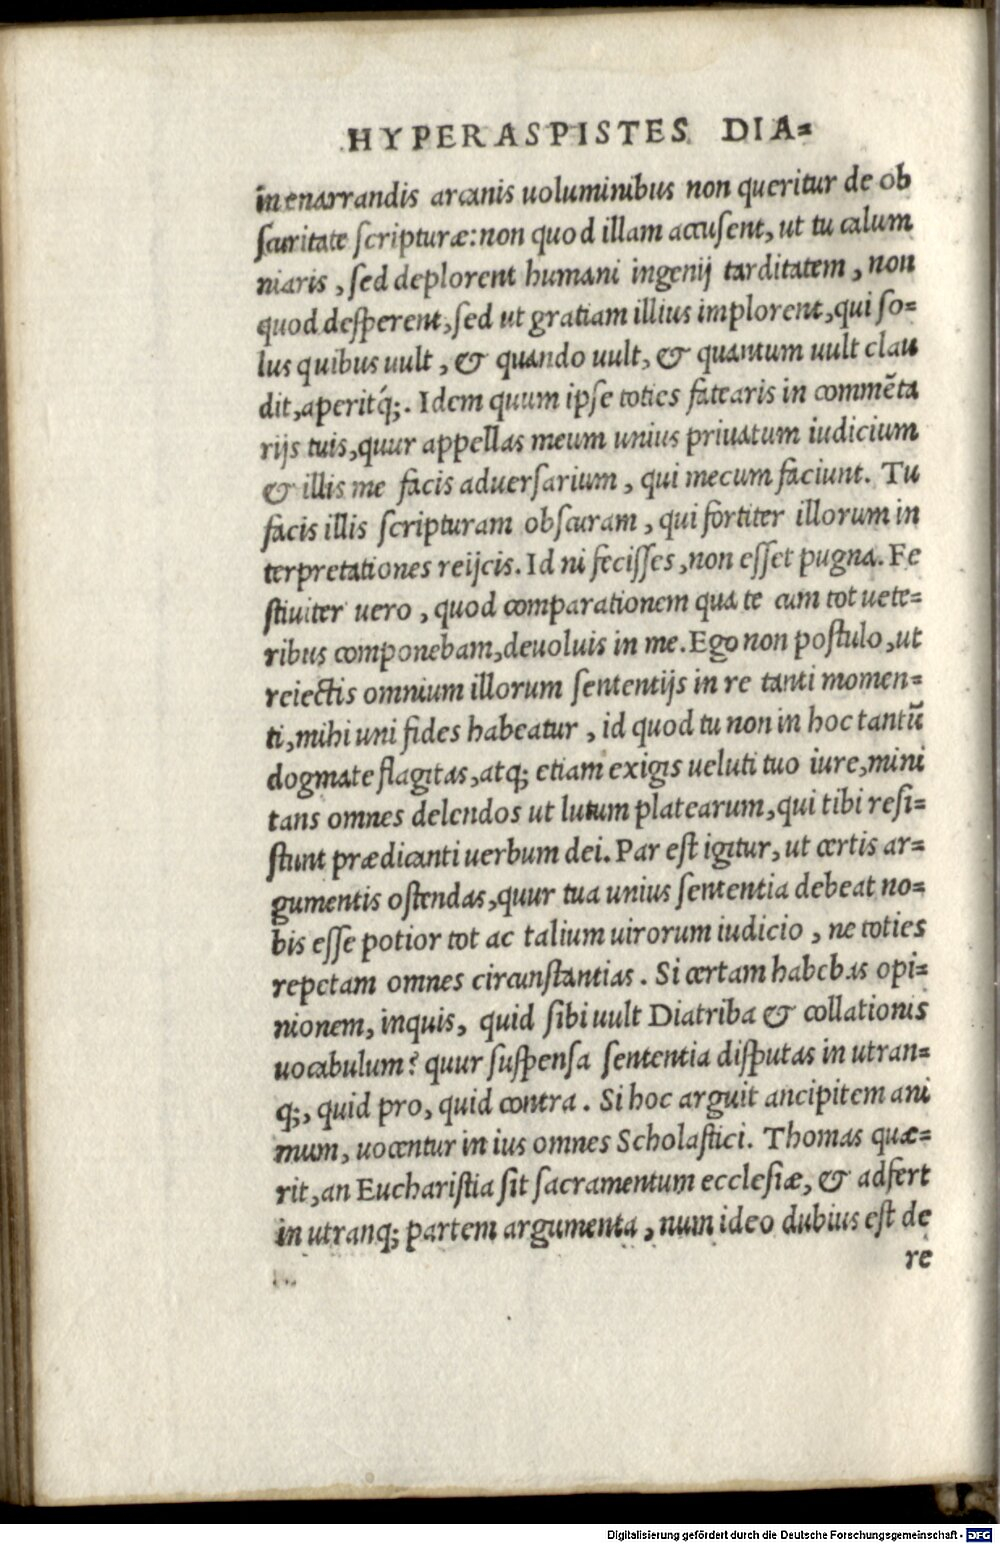 HYPERASPISTES DIA=
in enarrandis arcanis uoluminibus non queritur de ob
scuritate scripturæ: non quod illam accusent, ut tu calum
niaris, sed deplorent humani ingenij tarditatem, non
quod desperent, sed ut gratiam illius implorent, qui so=
lus quibus uult, & quando uult, & quantum uult clau
dit, aperitq́;. Idem quum ipse toties fatearis in commẽta
rijs tuis, quur appellas meum unius priuatum iudicium
& illis me facis aduersarium, qui mecum faciunt. Tu
facis illis scripturam obscuram, qui fortiter illorum in
terpretationes reijcis. Id ni fecisses, non esset pugna. Fe
stiuiter uero, quod comparationem qua te cum tot uete=
ribus componebam, deuoluis in me. Ego non postulo, ut
reiectis omnium illorum sententijs in re tanti momen=
ti, mihi uni fides habeatur, id quod tu non in hoc tantũ
dogmate flagitas, atq; etiam exigis ueluti tuo iure, mini
tans omnes delendos ut lutum platearum, qui tibi resi=
stunt prædicanti uerbum dei. Par est igitur, ut certis ar=
gumentis ostendas, quur tua unius sententia debeat no=
bis esse potior tot ac talium uirorum iudicio, ne toties
repetam omnes circunstantias. Si certam habebas opi=
nionem, inquis, quid sibi uult Diatriba & collationis
uocabulum? quur suspensa sententia disputas in utran=
q;, quid pro, quid contra. Si hoc arguit ancipitem ani
mum, uocentur in ius omnes Scholastici. Thomas quæ=
rit, an Eucharistia sit sacramentum ecclesiæ, & adfert
in utranq; partem argumenta, num ideo dubius est de
re
Digitalisierung gefördert durch die Deutsche Forschungsgemeinschaft - DFG